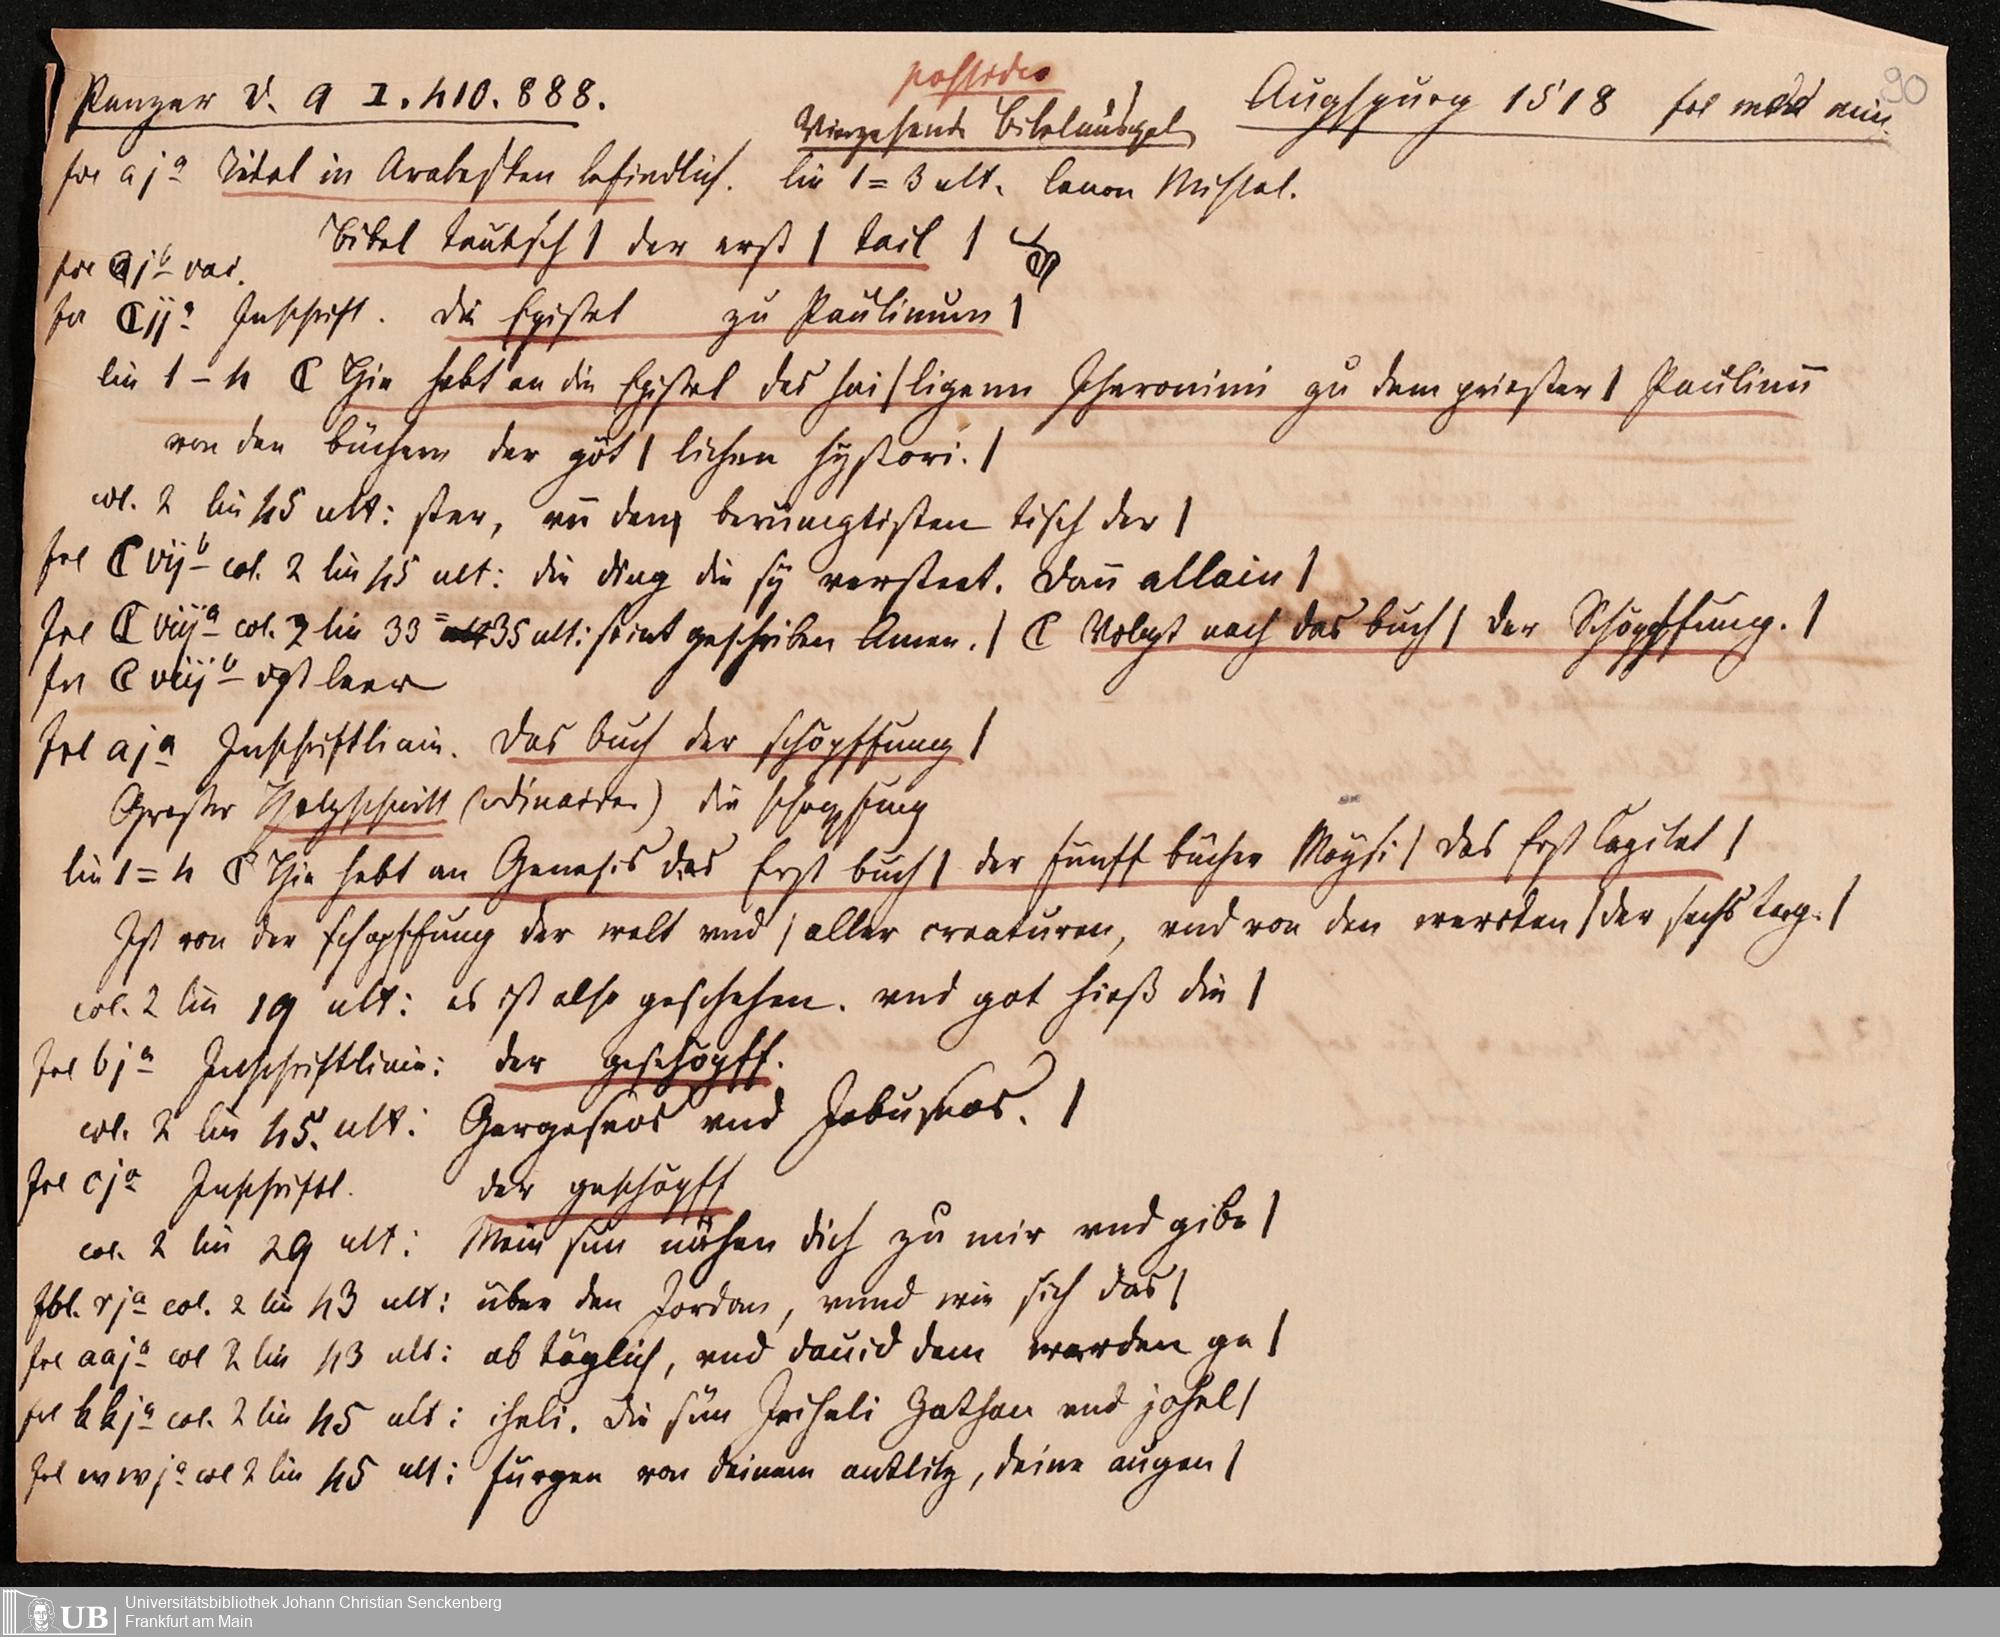 possideo
90
Panzer D. A I. 410. 888.
Viezehende Bibelausgab
Augspurg 1518 fol min.
fol a jª Titel in Arabesken befindlich. lin 1=3 ult. Canon Missal.
Bibel teutsch | der erst | tail |
fol jᵇ vac.
fol C ijª Inschrift. Die Epistel zu Paulinum |
lin 1–4 C Hie hebt an die Epistel des hai|ligenn Jheronimi zu dem priester | Paulinū
von den büchern der göt | lichen hystori. |
col. 2 lin 45 ult: ster, vn̄ dem berümptisten tisch der |
fol C vijᵇ col. 2 lin 45 ult: die ding die sy versteet. Dan̄ allain |
fol C viijª col. 2 lin 33=35 ult: seint geschriben Amen. | C Volgt nach das buch | der Schöpffung. |
fol C viijᵇ ist leer
fol a jª Inschriftlinie. Das buch der schöpffung |
Grosser Holzschnitt (ordinairer) die schopfung
lin 1=4 C Hie hebt an Genesis das Erst buch | der fünff bücher Moysi | Das Erst Capitel |
Ist von der schöpffung der welt vnd | aller creaturen, vnd von den wercken | der sechs tag. |
col. 2 lin 19 ult: es ist also geschehen. vnd got hieß die |
fol b jª Inschriftlinie: der geschöpff.
col. 2 lin 45. ult: Gergeseos vnd Jebuseos. |
fol c jª Inschriftl. der geschöpff
col. 2 lin 29 ult: Mein sun nähen dich zu mir vnd gibe |
fol. r jª col. 2 lin 43 ult: über den Jordan, vnnd wie sich das |
fol aajª col 2 lin 43 ult: ab täglich, vnd dauid dem werden ge |
fol kkjª col. 2 lin 45 ult: iheli. Die sün Jeiheli Zathan vnd johel |
fol wwjª col 2 lin 45 ult: fürgen von deinem antlitz, deine augen |
UB Universitätsbibliothek Johann Christian Senckenberg
Frankfurt am Main